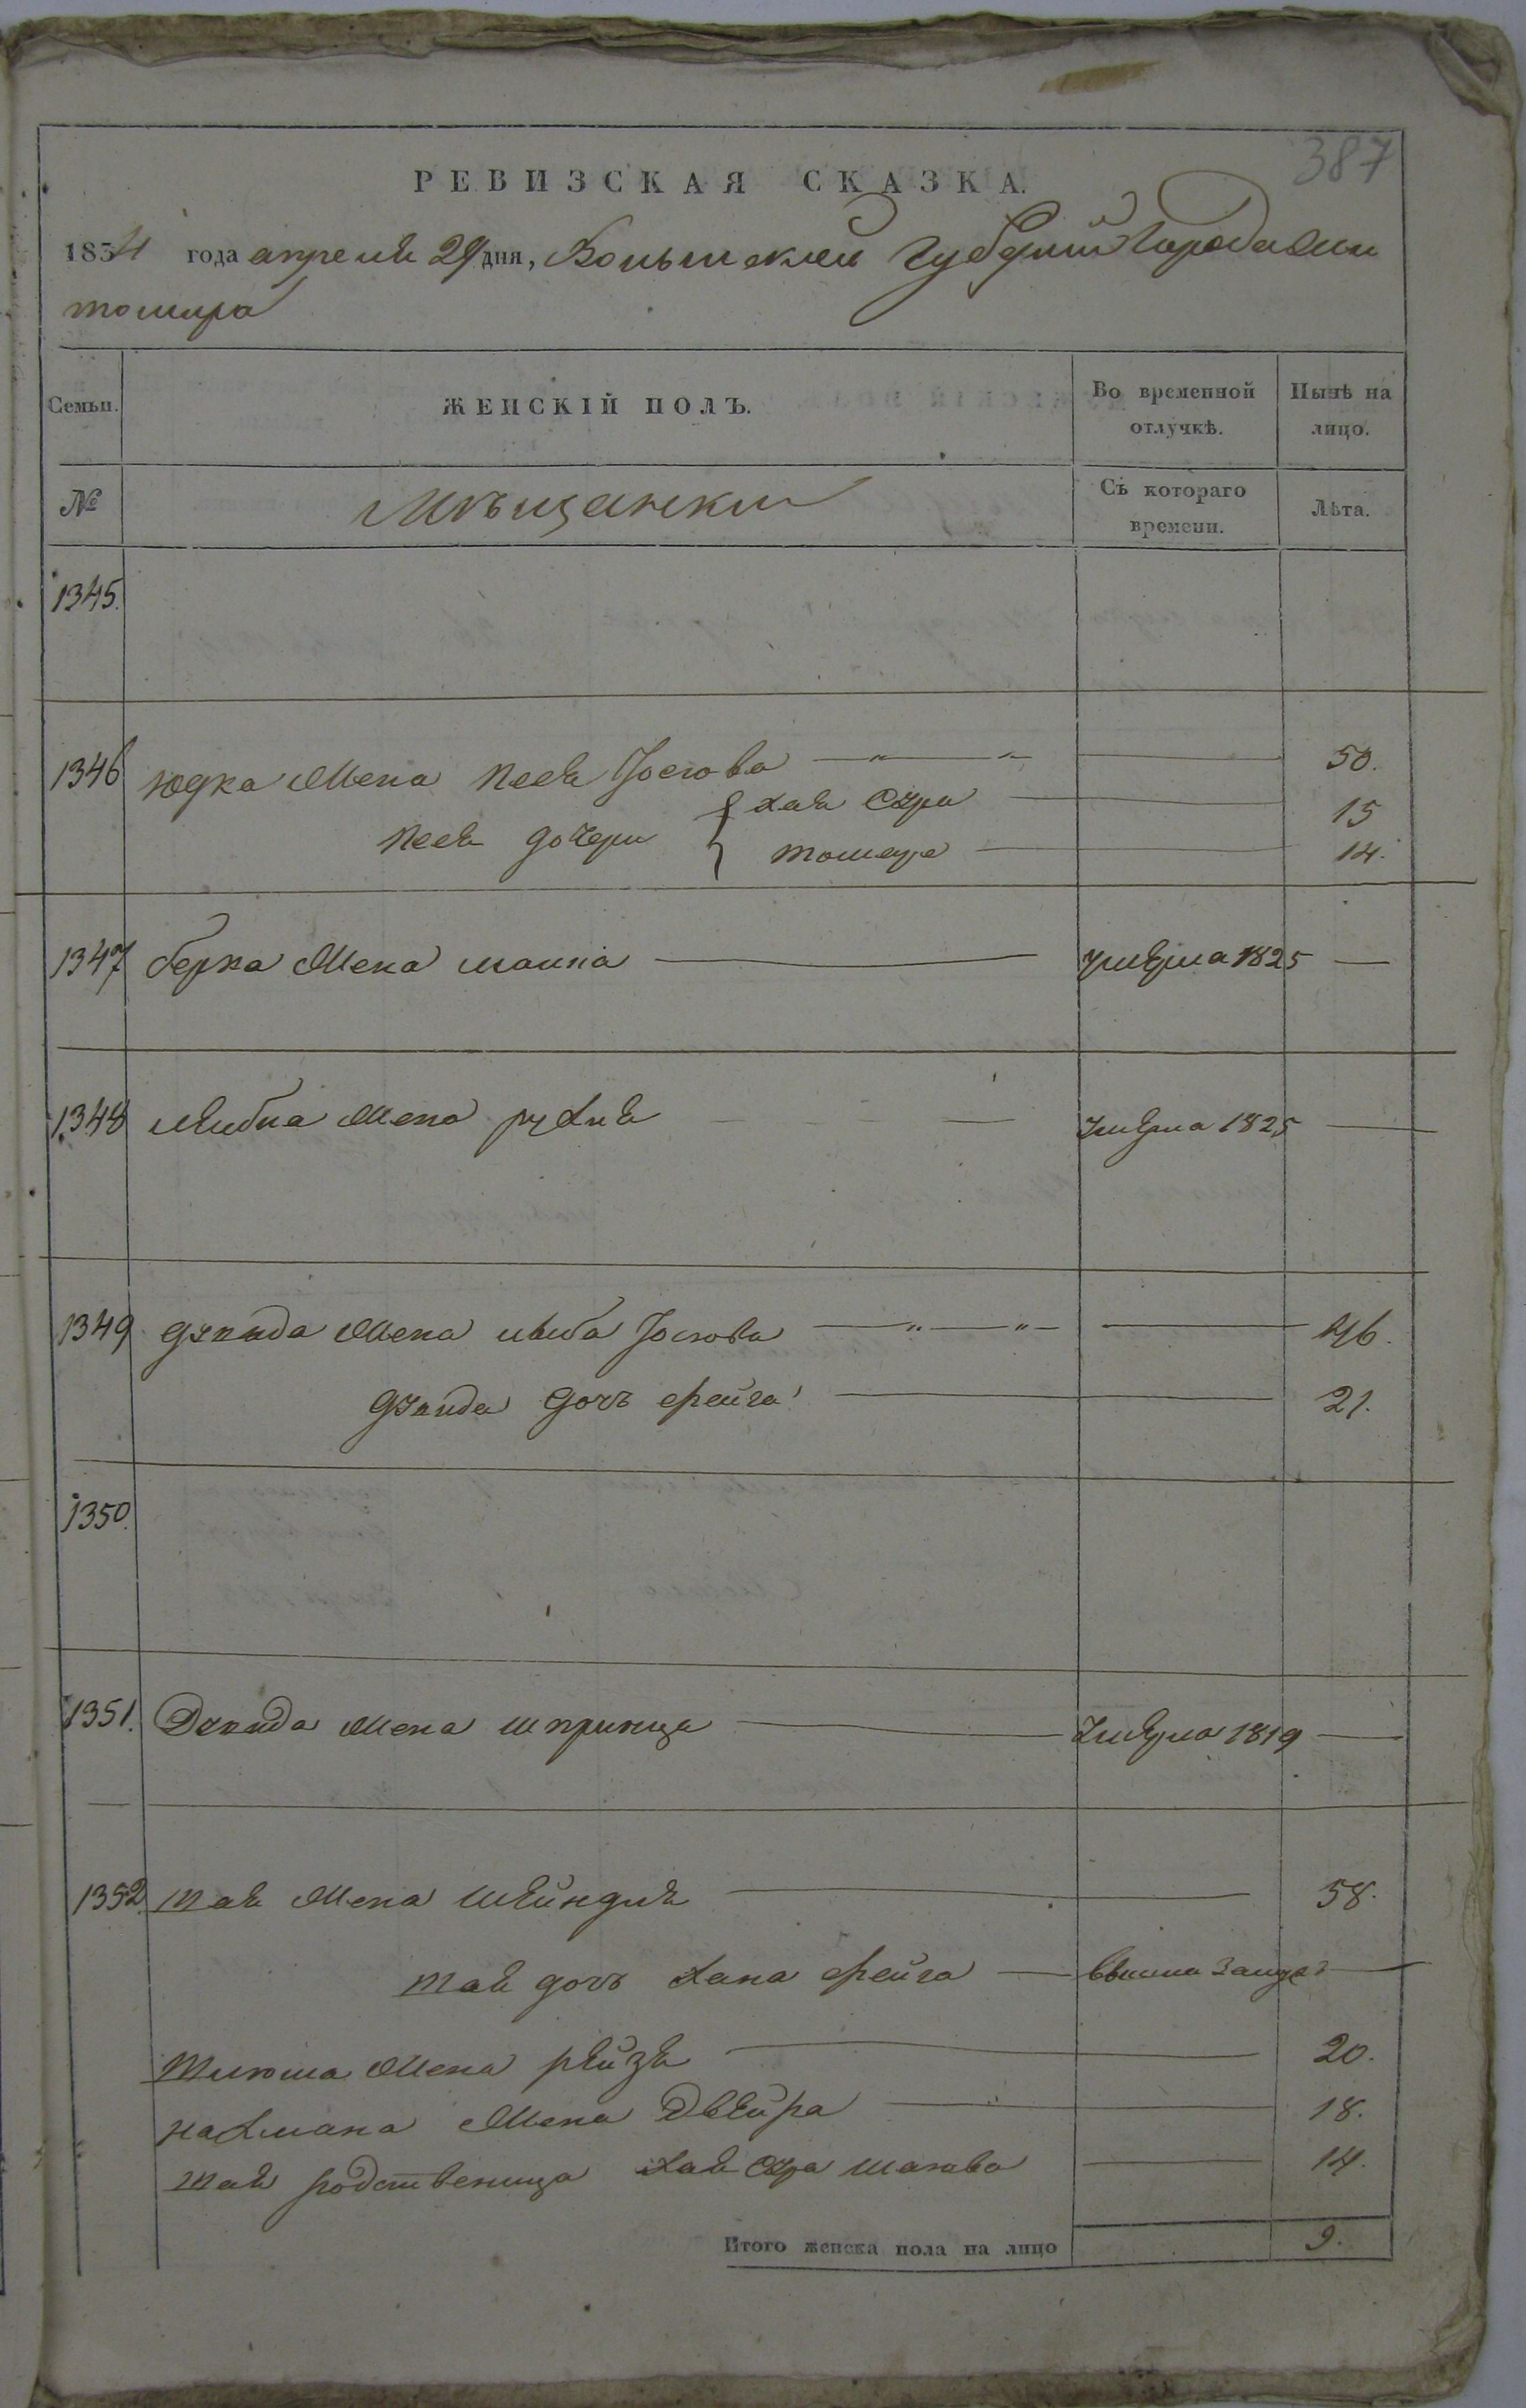 387
РЕВИЗСКАЯ СКАЗКА.
1834 года апреля 29 дня, Волынской Губернии Города Жи
томира
Семьи.
ЖЕНСКІЙ ПОЛЪ.
Во временной отлучкѣ.
Нынѣ на лицо.
№
Мѣщанки
Съ котораго времени.
Лѣта.
1345.
1346 Юдка жена Песя Іосіова 50.
Песя дочери { хая Сура 15
14.
1347 берка жена умерла 1825
1348 жена рухля умерла 1825
1349 жена Іосіова 46.
дочь фейга 21.
1350.
1351. жена шпринца умерла 1819
1352. жена шейндля 58.
дочь хана фейга вышла замуж
жена рейзя 20.
нахмана жена Двейра 18.
родственица хая Сура 14.
Итого женска пола на лицо 9.